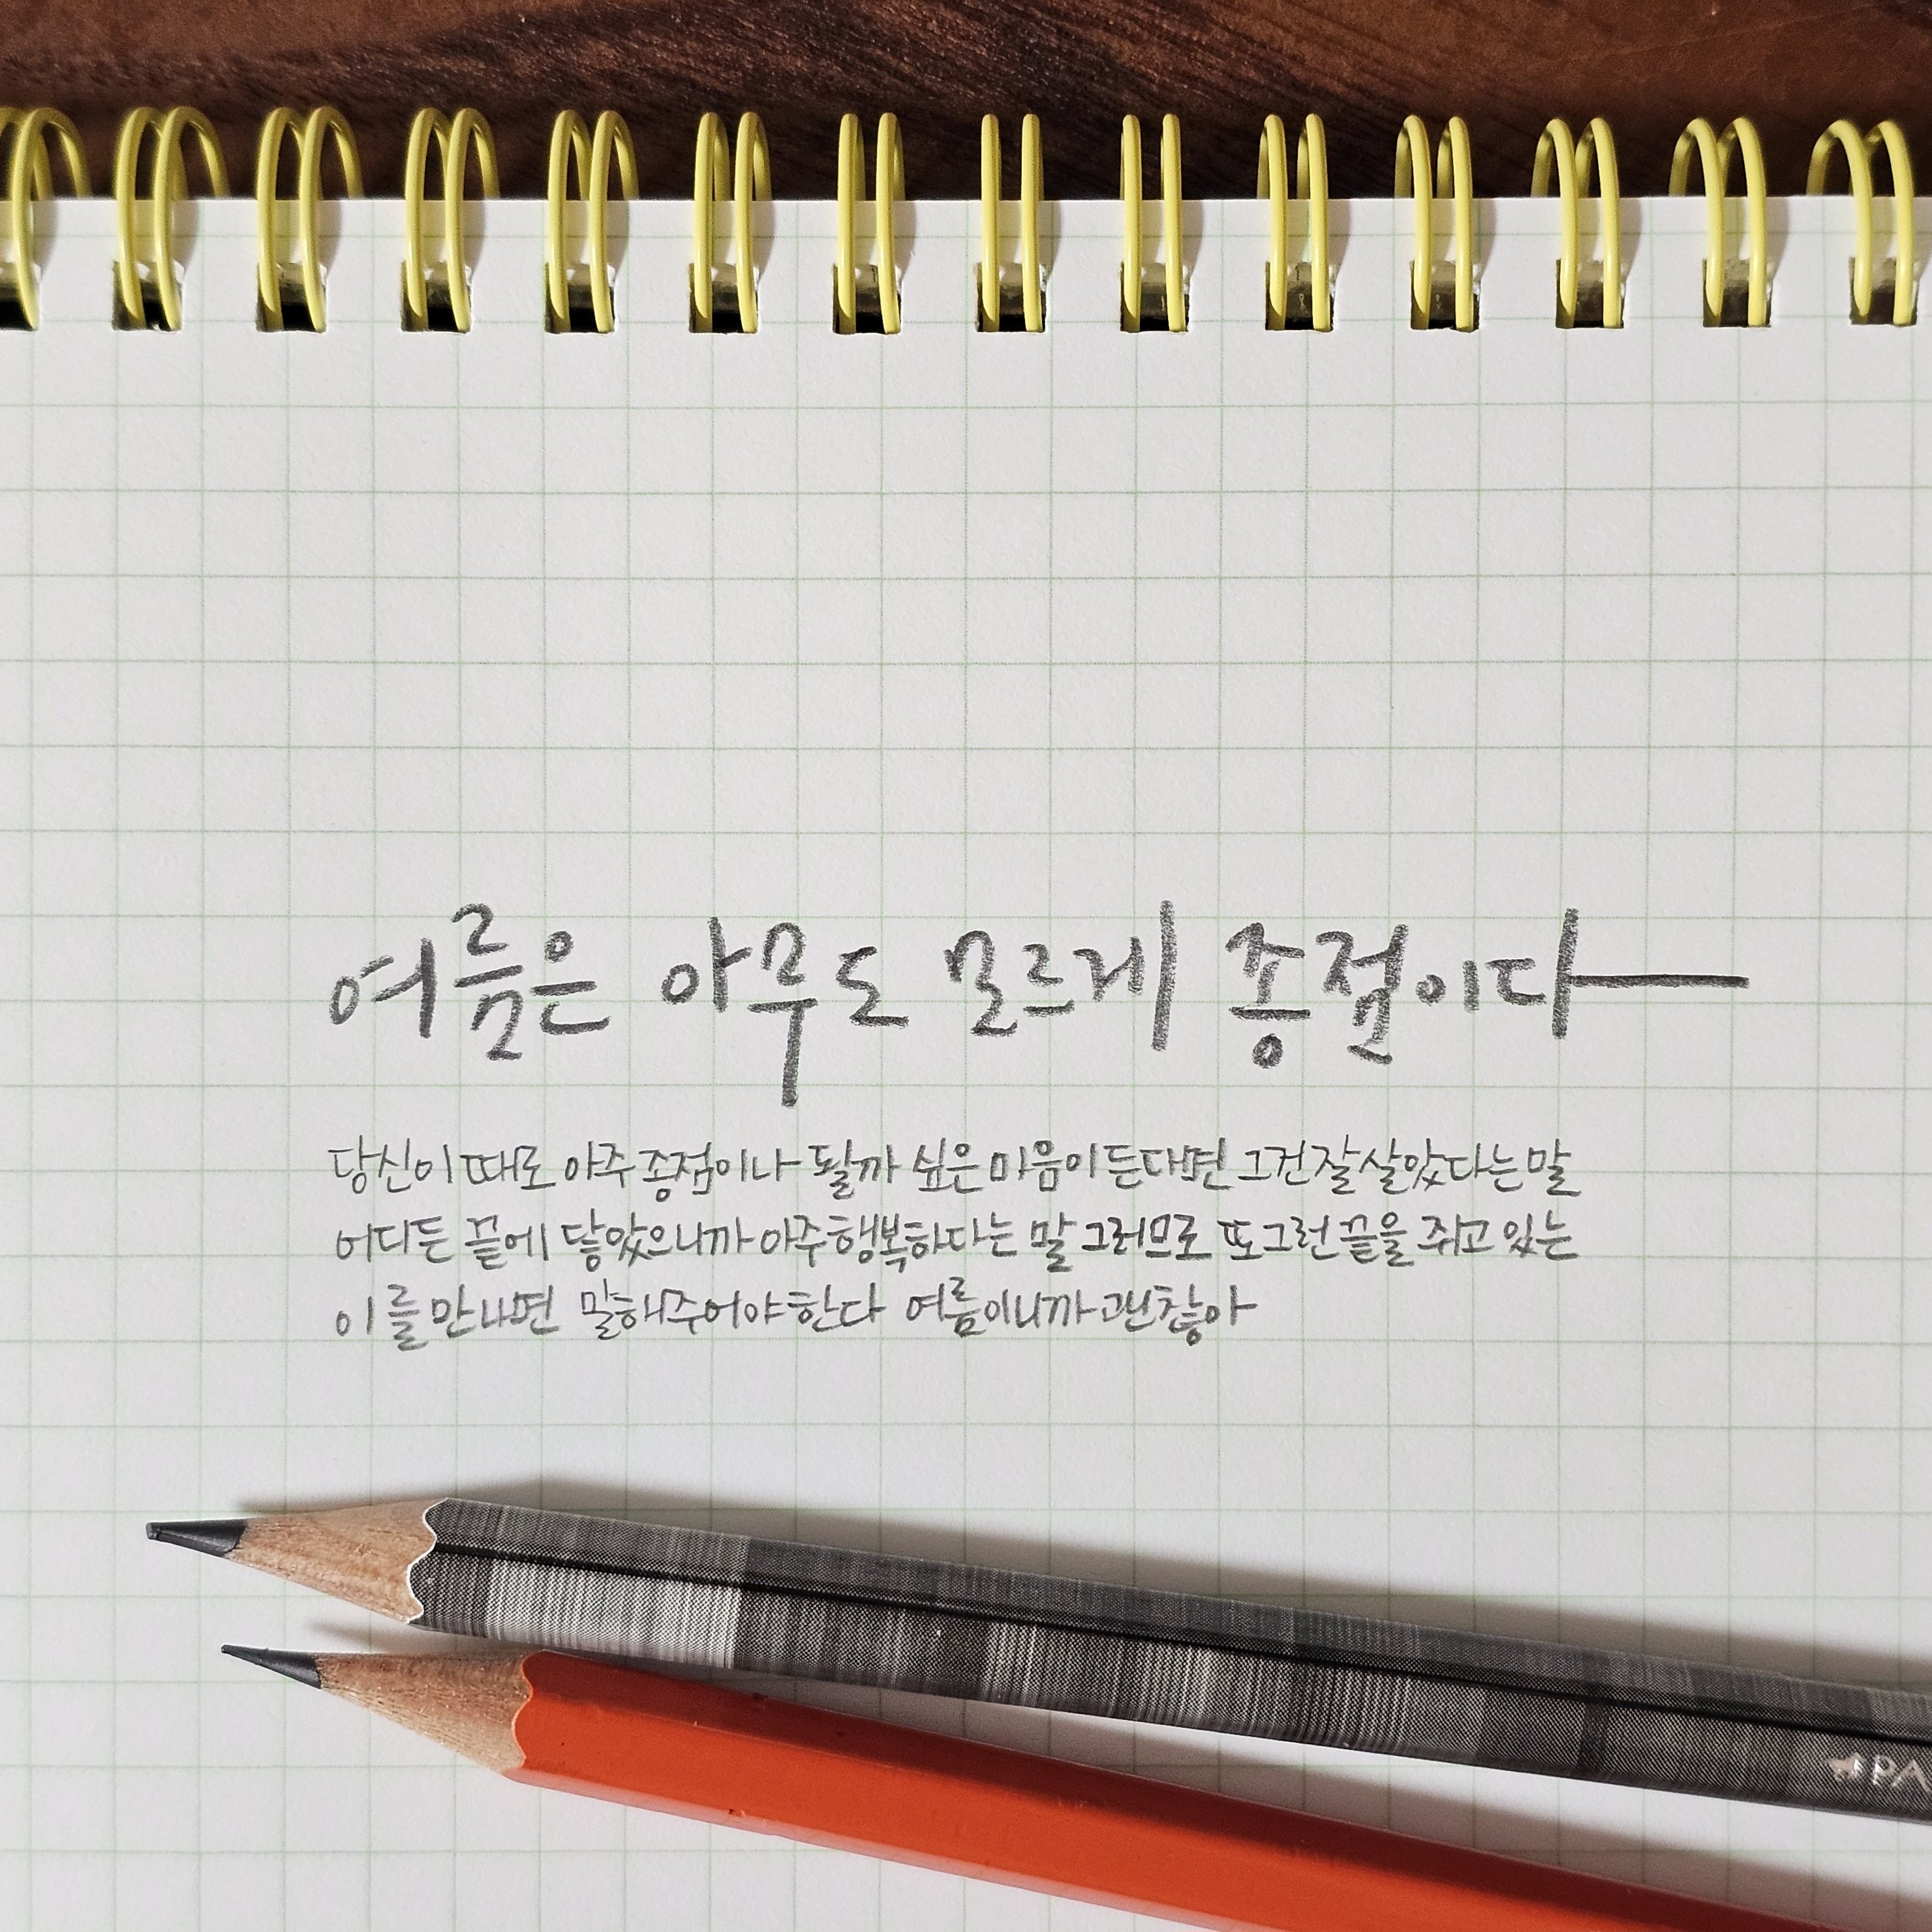 여름은 아무도 모르게 종점이다
당신이 때로 아주 종점이나 될까 싶은 마음이 든다면 그건 잘 살았다는 말
어디든 끝에 닿았으니까 아주 행복하다는 말 그러므로 또 그런 끝을 쥐고 있는
이를 만나면 말해주어야 한다 여름이니까 괜찮아
PA